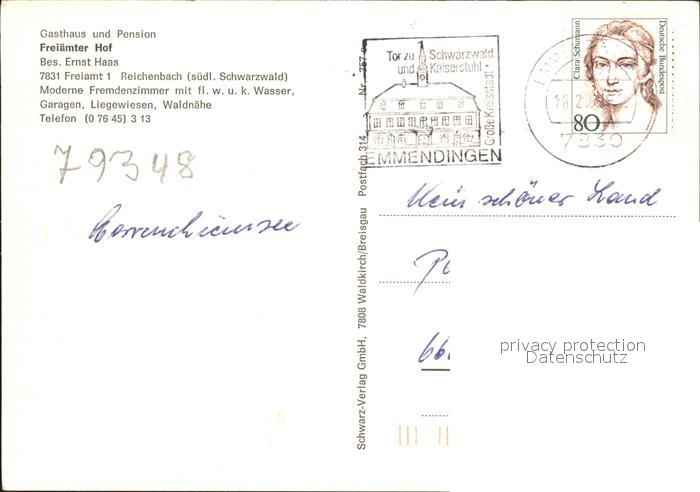 Gasthaus und Pension
Freiämter Hof
Bes. Ernst Haas
7831 Freiamt 1 Reichenbach (südl. Schwarzwald)
Moderne Fremdenzimmer mit fl. w. u. k. Wasser,
Garagen, Liegewiesen, Waldnähe
Telefon (0 76 45) 3 13
79348
Herrenchiemsee
Schwarz-Verlag GmbH, 7808 Waldkirch/Breisgau Postfach 314
Tor zu Schwarzwald
und Kaiserstuhl
Große Kreisstadt
EMMENDINGEN
7830
Clara Schumann
Deutsche Bundespost
80
Mein schöner Land
privacy protection
Datenschutz